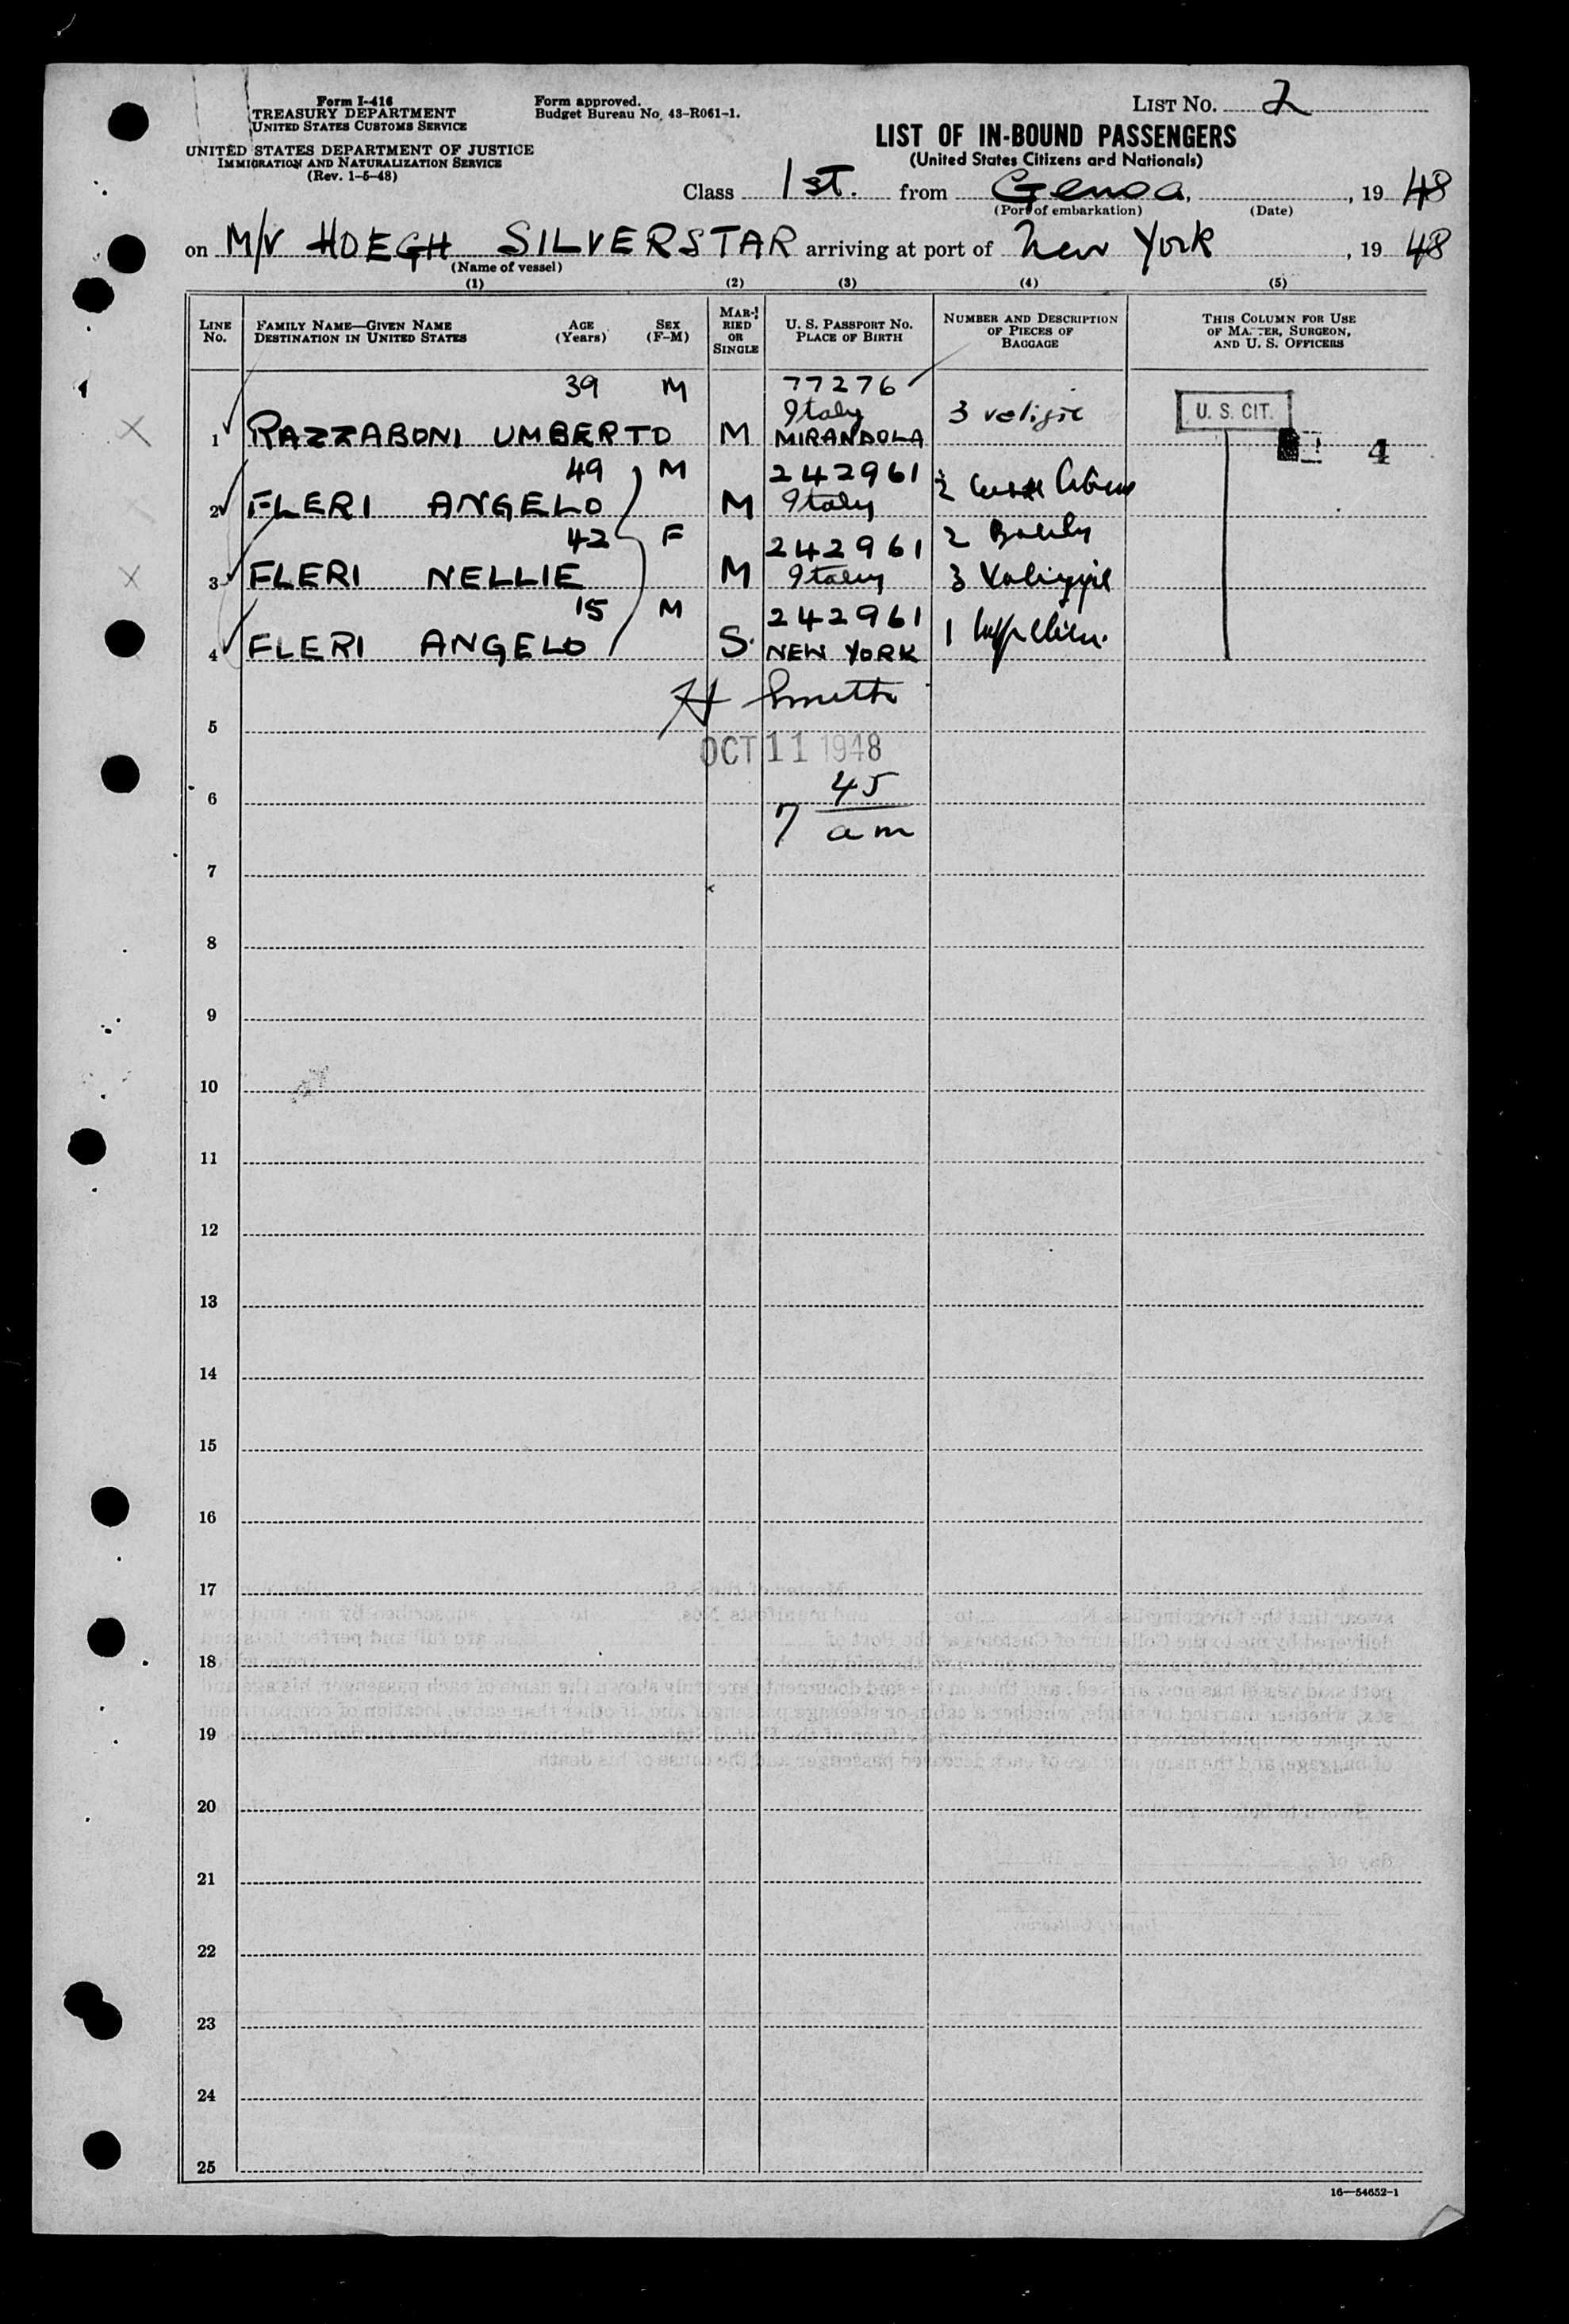 Form I-416
TREASURY DEPARTMENT
UNITED STATES CUSTOMS SERVICE
UNITED STATES DEPARTMENT OF JUSTICE
IMMIGRATION AND NATURALIZATION SERVICE
(Rev. 1-5-48)
Form approved.
Budget Bureau No. 43-R061-1.
LIST NO. 2
LIST OF IN-BOUND PASSENGERS
(United States Citizens and Nationals)
Class 1st. from Genoa, , 19 48
(Port of embarkation) (Date)
on M/V HOEGH SILVERSTAR arriving at port of New York , 19 48
(Name of vessel)
(1) (2) (3) (4) (5)
LINE NO. FAMILY NAME—GIVEN NAME DESTINATION IN UNITED STATES AGE (Years) SEX (F-M) MARRIED OR SINGLE U. S. PASSPORT NO. PLACE OF BIRTH NUMBER AND DESCRIPTION OF PIECES OF BAGGAGE THIS COLUMN FOR USE OF MASTER, SURGEON, AND U. S. OFFICERS
39 M 77276
Italy 3 valigie U. S. CIT.
1 RAZZABONI UMBERTO M MIRANDOLA 4
49 M 242961
2 FLERI ANGELO M Italy 2
42 F 242961 2
3 FLERI NELLIE M Italy 3
15 M 242961
4 FLERI ANGELO S. NEW YORK 1
H Smith
5
OCT 11 1948
45
6
7 am
7
8
9
10
11
12
13
14
15
16
17
18
19
20
21
22
23
24
25
16—54652-1